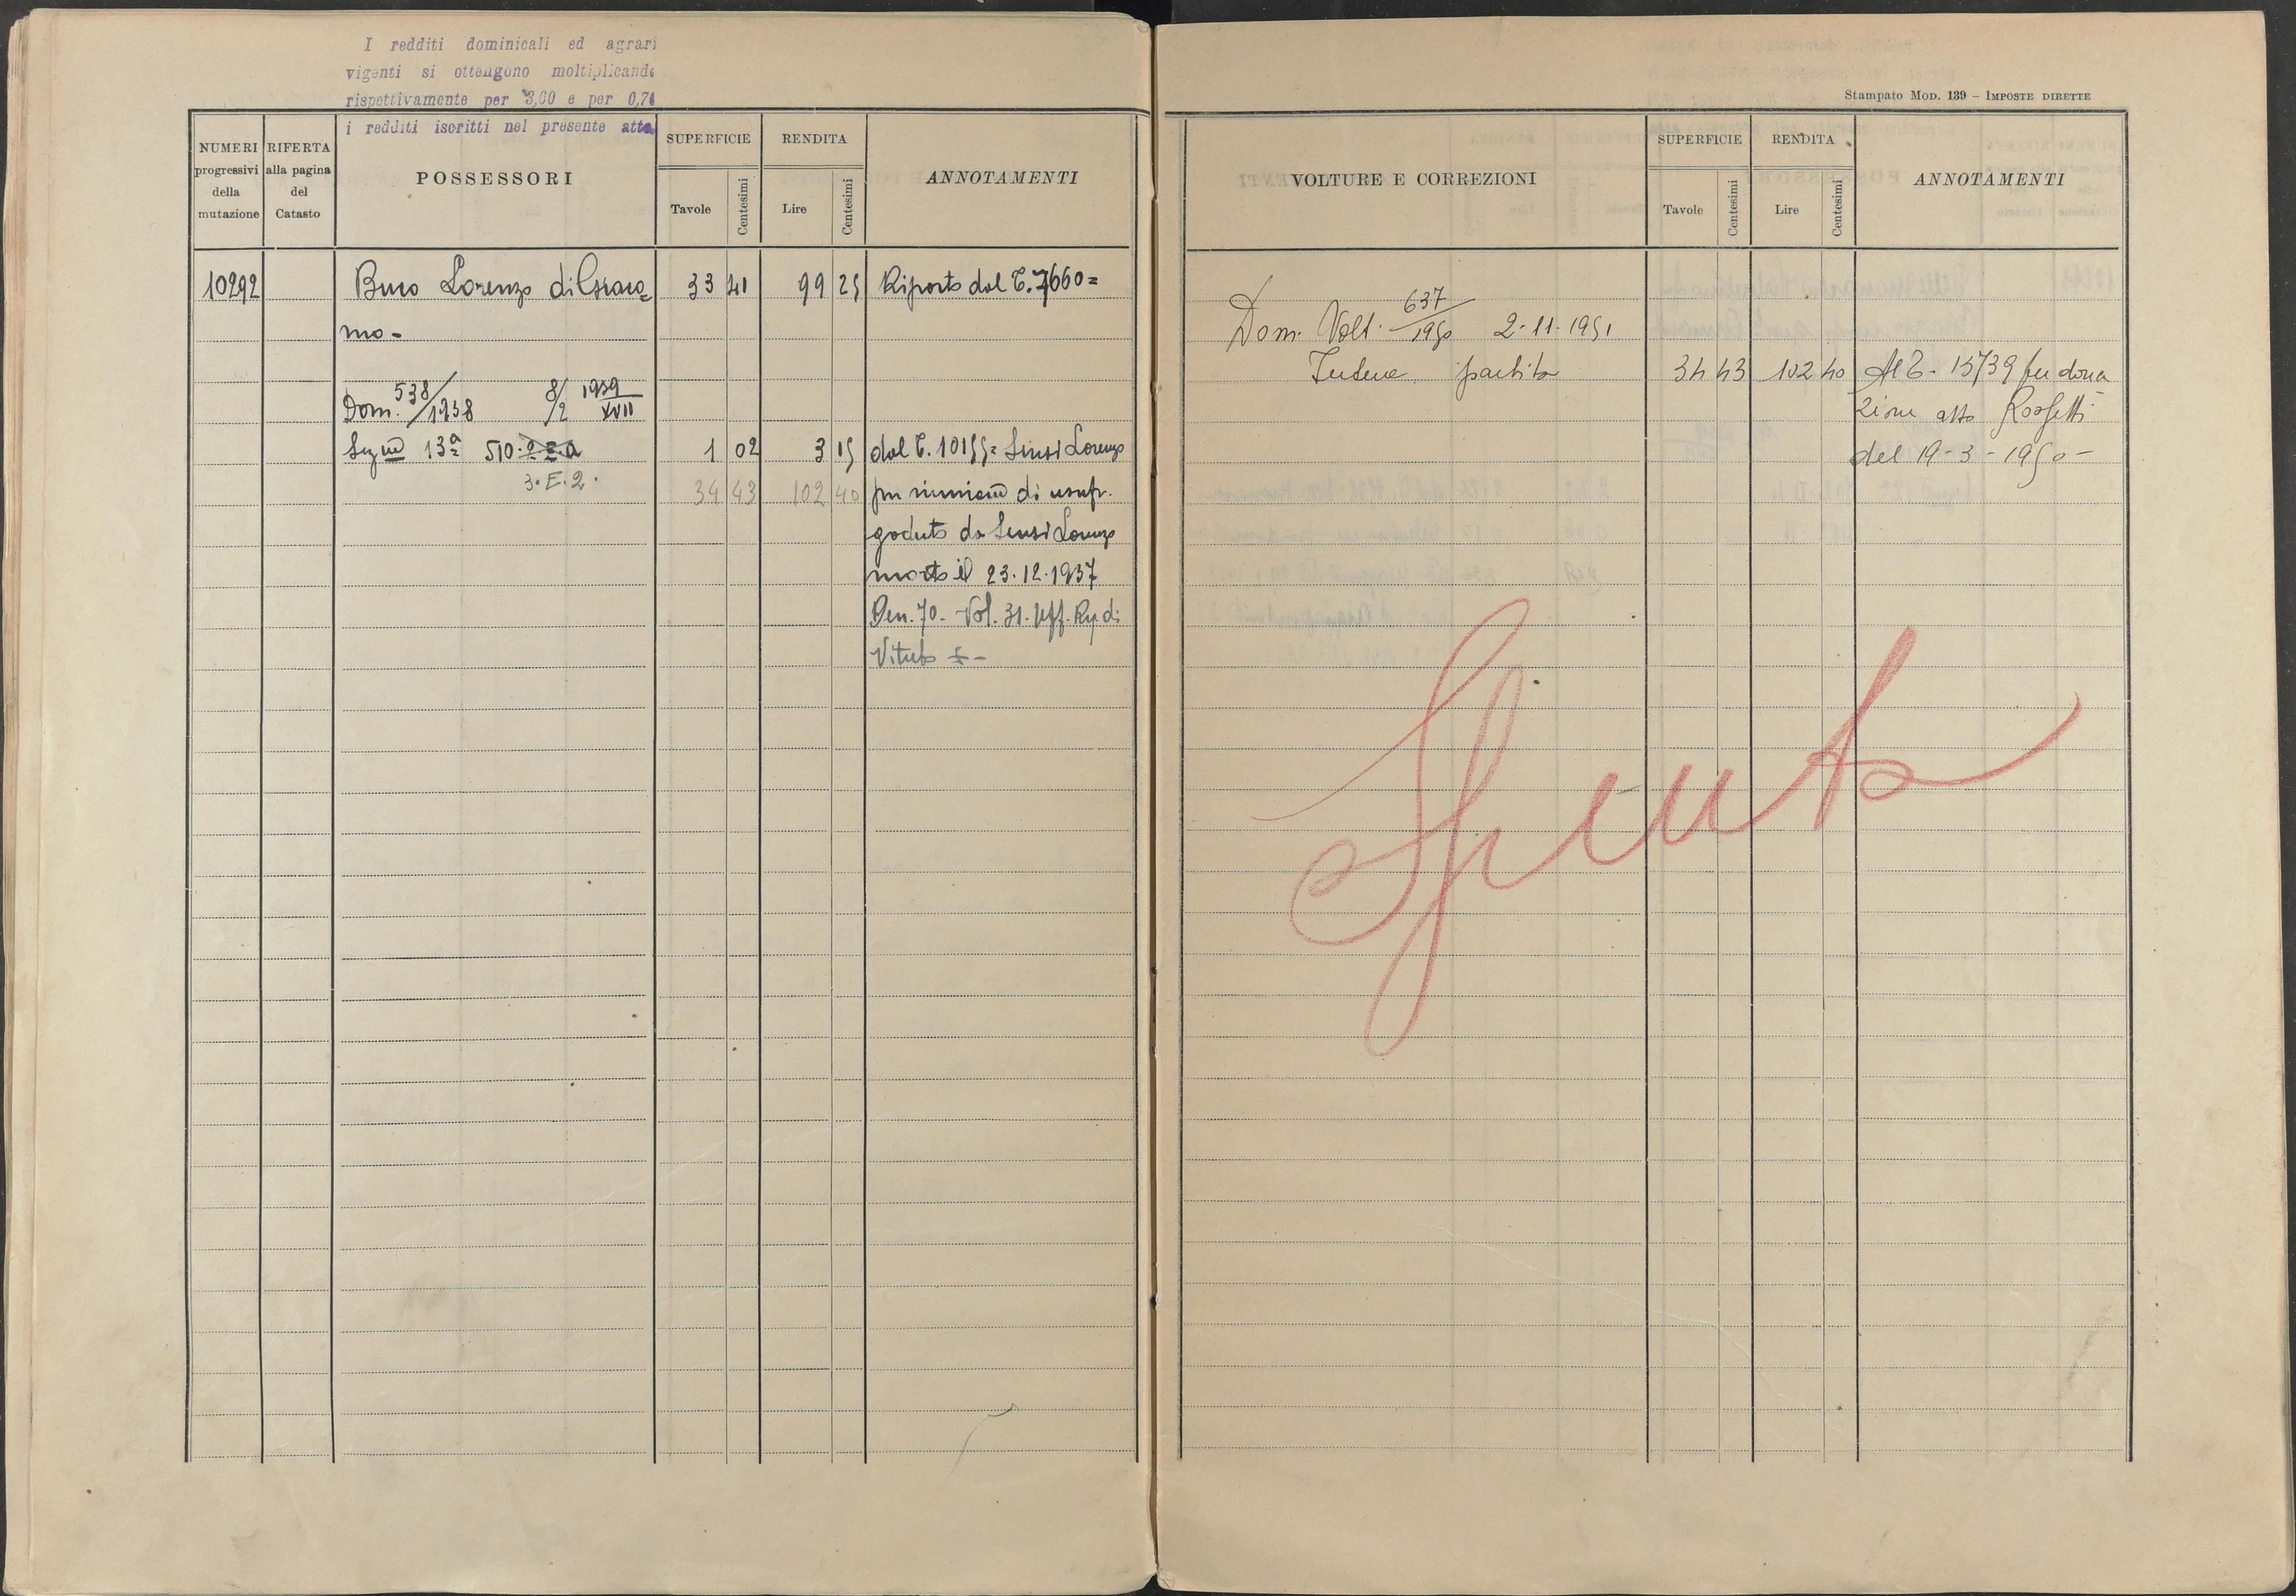 I redditi dominicali ed agrari
vigenti si ottengono moltiplicando
rispettivamente per 3,60 e per 0,74
i redditi iscritti nel presente atto.
NUMERI progressivi della mutazione
RIFERTA alla pagina del Catasto
POSSESSORI
SUPERFICIE
Tavole
Centesimi
RENDITA
Lire
Centesimi
ANNOTAMENTI
10292 Lorenzo di 33 41 99 25 Riporto dal T. 7660=
mo-
Dom. 538/1938 8/2 1939 XVII
13ª 510. 1 02 3 15 dal T. 10155= Sensi Lorenzo
3. E. 2. 34 43 102 40 per di usuf.
goduto da Sensi Lorenzo
morto il 23.12.1937
Den. 70. Vol. 31. Uff. di
Viterbo
Stampato Mod. 139 – Imposte dirette
VOLTURE E CORREZIONI
SUPERFICIE
Tavole
Centesimi
RENDITA
Lire
Centesimi
ANNOTAMENTI
Dom. Volt. 637/1950 2-11-1951
partita 34 43 102 40 Al T- 15739 per dona
zione atto Rossetti
del 19-3-1950-
Spento